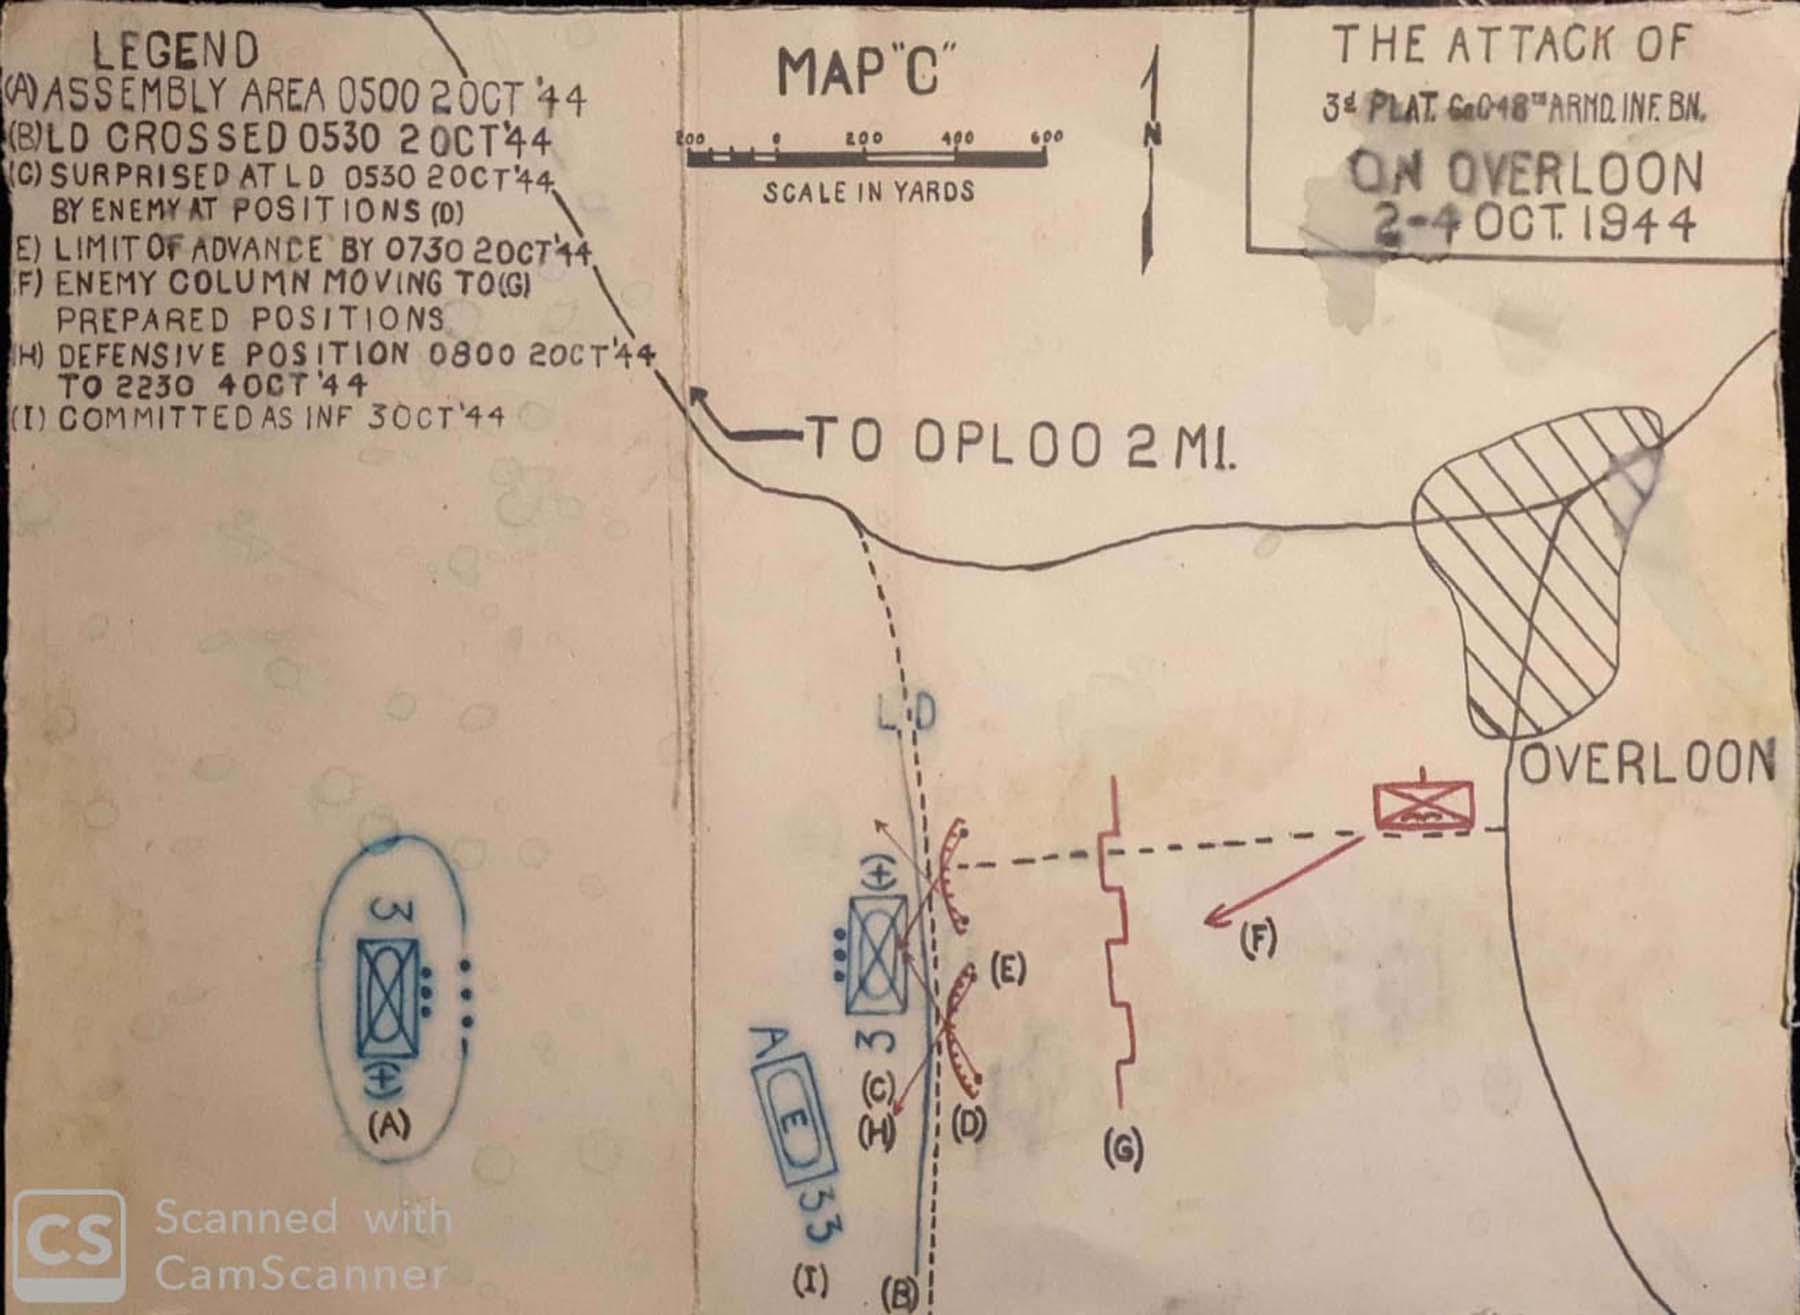 LEGEND
(A) ASSEMBLY AREA 0500 2 OCT '44
(B) LD CROSSED 0530 2 OCT '44
(C) SURPRISED AT LD 0530 2 OCT '44
BY ENEMY AT POSITIONS (D)
E) LIMIT OF ADVANCE BY 0730 2 OCT '44
F) ENEMY COLUMN MOVING TO (G)
PREPARED POSITIONS
H) DEFENSIVE POSITION 0800 2 OCT '44
TO 2230 4 OCT '44
(I) COMMITTED AS INF 3 OCT '44
MAP "C"
200 0 200 400 600
SCALE IN YARDS
N
THE ATTACK OF
3d PLAT. Co C 48TH ARMD. INF. BN.
ON OVERLOON
2-4 OCT. 1944
TO OPLOO 2 MI.
LD
OVERLOON
(+)
3
(F)
(E)
3
(+)
(A)
A
E
33
(I)
(C)
(H)
(D)
(G)
(B)
CS
Scanned with
CamScanner